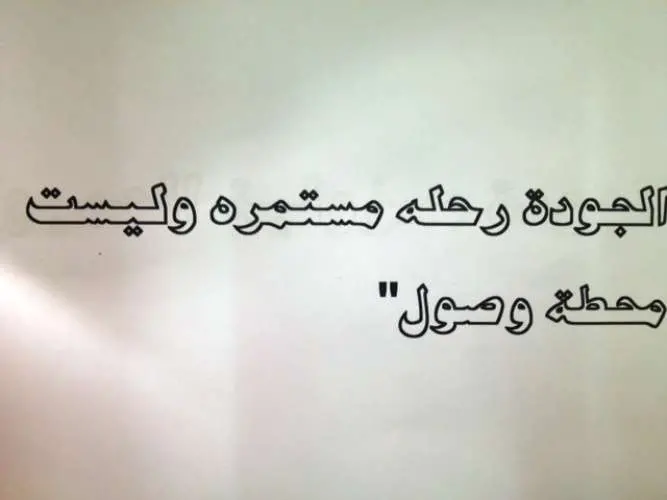 الجودة رحله مستمره وليست
محطة وصول"